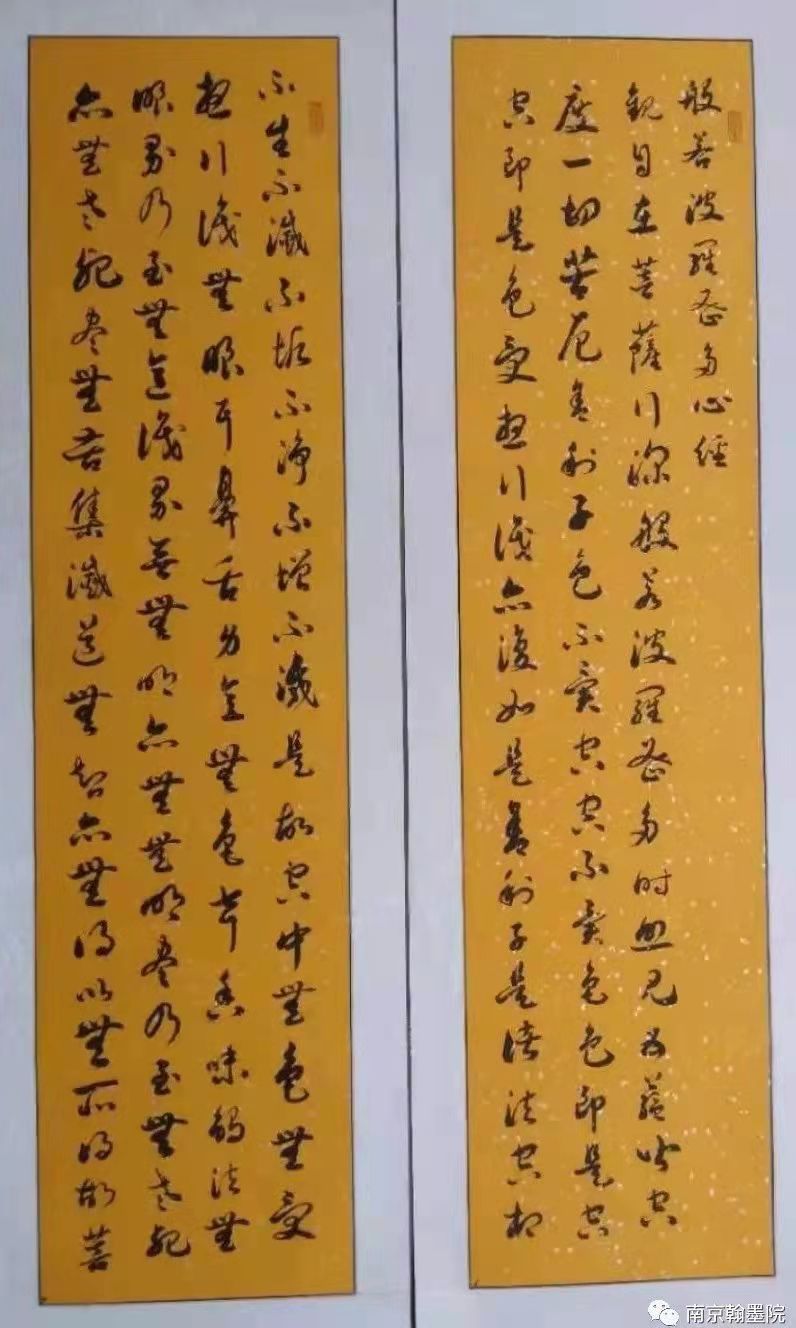 般若波羅蜜多心經
觀自在菩薩行深般若波羅蜜多时照見五蘊皆空
度一切苦厄舍利子色不異空空不異色色即是空
空即是色受想行識亦復如是舍利子是諸法空相
不生不滅不垢不淨不增不減是故空中無色無受
想行識無眼耳鼻舌身意無色聲香味觸法無
眼界乃至無意識界無無明亦無無明盡乃至無老死
亦無老死盡無苦集滅道無智亦無得以無所得故菩
南京翰墨院